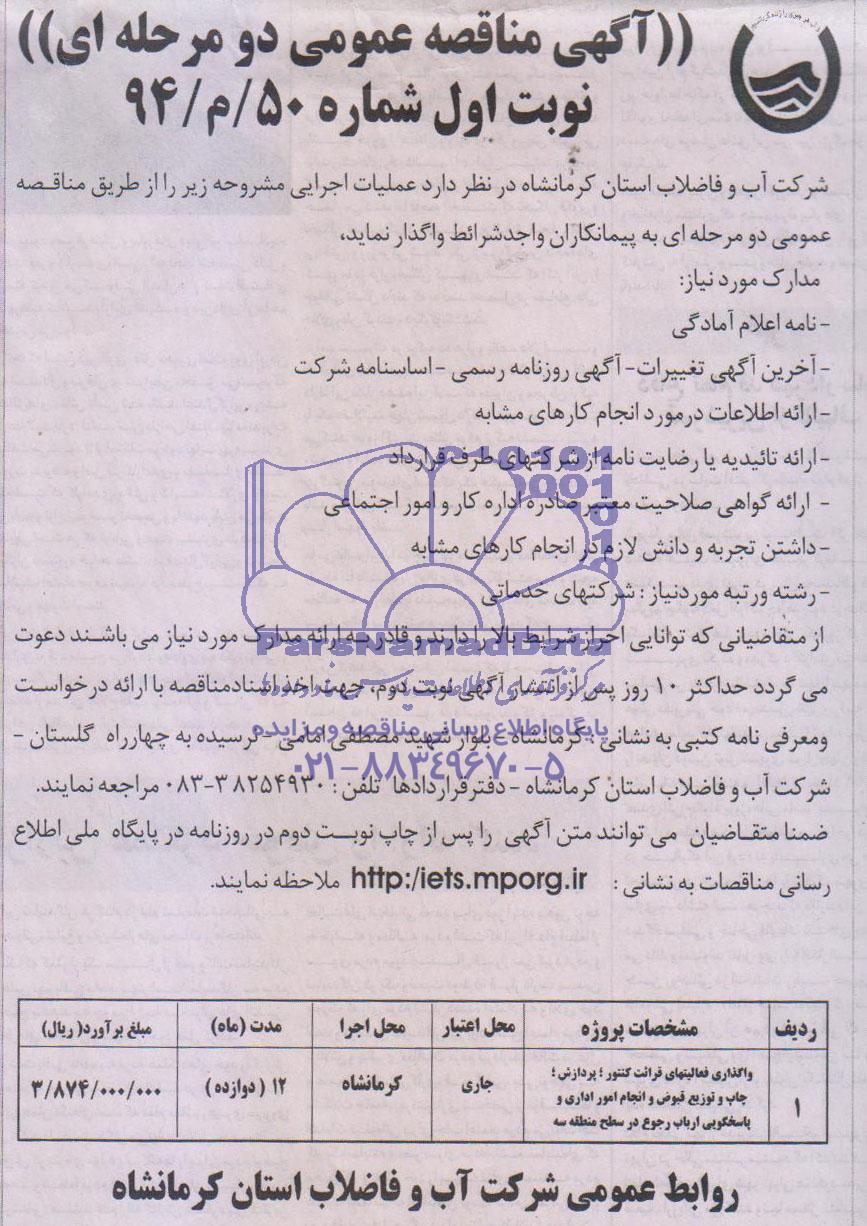 ((آگهی مناقصه عمومی دو مرحله ای))
نوبت اول شماره ۵۰/م/۹۴
شرکت آب و فاضلاب استان کرمانشاه در نظر دارد عملیات اجرایی مشروحه زیر را از طریق مناقصه
عمومی دو مرحله ای به پیمانکاران واجدشرائط واگذار نماید،
مدارک مورد نیاز:
- نامه اعلام آمادگی
- آخرین آگهی تغییرات- آگهی روزنامه رسمی -اساسنامه شرکت
-ارائه اطلاعات درمورد انجام کارهای مشابه
-ارائه تائیدیه یا رضایت نامه از شرکتهای طرف قرارداد
- ارائه گواهی صلاحیت معتبر صادره اداره کار و امور اجتماعی
-داشتن تجربه و دانش لازم در انجام کارهای مشابه
-رشته ورتبه موردنیاز : شرکتهای خدماتی
از متقاضیانی که توانایی احراز شرایط بالا را دارند و قادر به ارائه مدارک مورد نیاز می باشند دعوت
ParsNamadData
می گردد حداکثر ۱۰ روز پس از انتشار آگهی نوبت دوم، جهت اخذ اسنادمناقصه با ارائه درخواست
پایگاه اطلاع رسانی مناقصه و مزایده
ومعرفی نامه کتبی به نشانی : کرمانشاه - بلوار شهید مصطفی امامی - نرسیده به چهارراه گلستان -
۰۲۱-۸۸۳۴۹۶۷۰-۵
شرکت آب و فاضلاب استان کرمانشاه - دفترقراردادها تلفن : ۳۸۲۵۴۹۳۰-۰۸۳ مراجعه نمایند.
ضمنا متقاضیان می توانند متن آگهی را پس از چاپ نوبت دوم در روزنامه در پایگاه ملی اطلاع
رسانی مناقصات به نشانی : http:/iets.mporg.ir ملاحظه نمایند.
ردیف مشخصات پروژه محل اعتبار محل اجرا مدت (ماه) مبلغ برآورد( ریال)
۱ واگذاری فعالیتهای قرائت کنتور ؛ پردازش ؛
چاپ و توزیع قبوض و انجام امور اداری و
پاسخگویی ارباب رجوع در سطح منطقه سه
جاری کرمانشاه ۱۲ ( دوازده ) ۳/۸۷۴/۰۰۰/۰۰۰
روابط عمومی شرکت آب و فاضلاب استان کرمانشاه